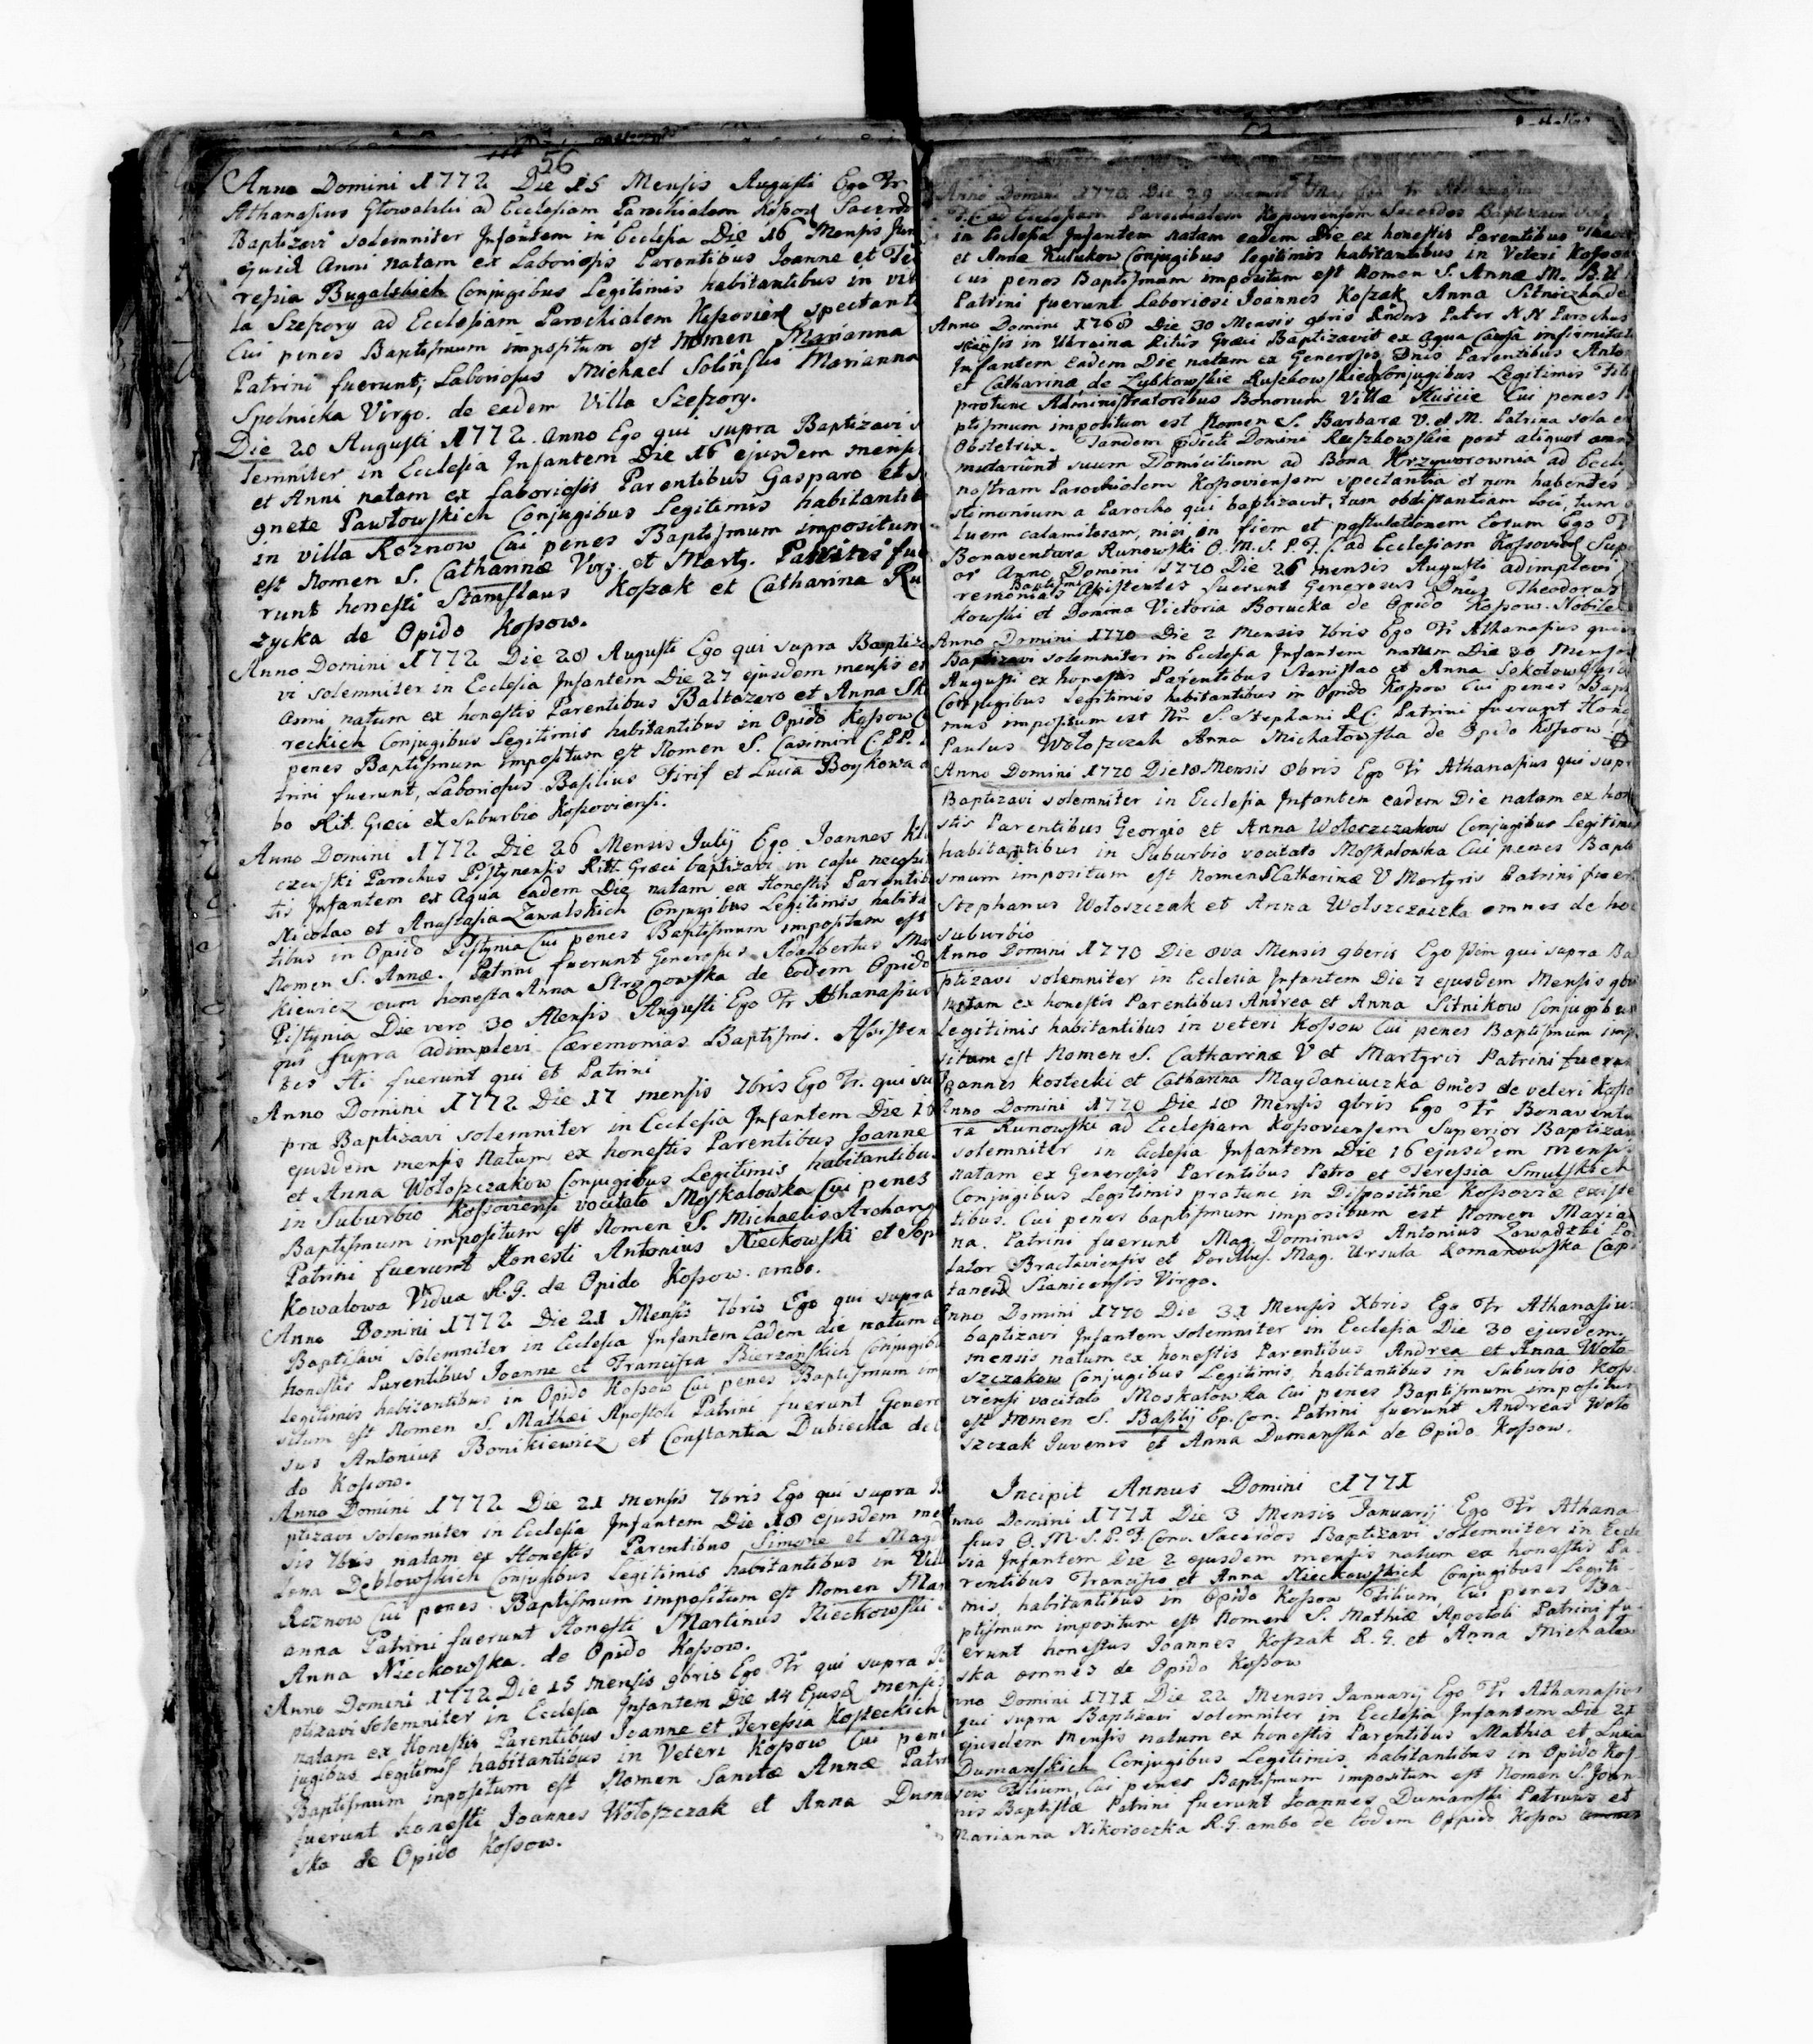 56
Anno Domini 1772 Die 15 Mensis Augusti Ego Fr
Athanasius Głowalski ad Ecclesiam Parochialem Kossov Sacerd
Baptizavi solemniter Infantem in Ecclesia Die 16 Mensis Jun
ejusd Anni natam ex Laboriosis Parentibus Joanne et Te
ressia Bugalskich Conjugibus Legitimis habitantibus in vil
la Szeszory ad Ecclesiam Parochialem Kossovien spectant
Cui penes Baptismum impositum est Nomen Marianna
Patrini fuerunt, Laboriosus Michael Solinski Marianna
Spolnicka Virgo. de eadem Villa Szeszory.
Die 20 Augusti 1772. Anno Ego qui supra Baptizavi s
lemniter in Ecclesia Infantem Die 16 ejusdem mensi
et Anni natam ex Laboriosis Parentibus Gasparo et
gnete Pawłowskich Conjugibus Legitimis habitantib
in villa Roznow Cui penes Baptismum impositum
est Nomen S. Catharinæ Virg. et Marty. Patrini fue
runt honesti Stanislaus Koszak et Catharina Ru
życka de Opido Kossow.
Anno Domini 1772 Die 28 Augusti Ego qui supra Baptiza
vi solemniter in Ecclesia Infantem Die 27 ejusdem mensis et
Anni natum ex honestis Parentibus Baltazero et Anna Sk
reckich Conjugibus Legitimis habitantibus in Opido Kossow C
penes Baptismum impositum est Nomen S. Casimiri C. P.
trini fuerunt, Laboriosus Basilius Firif et Lucia Boykowa
bo Rit. Græci ex Suburbio Kossoviensi.
Anno Domini 1772 Die 26 Mensis Julij Ego Joannes
czewski Parochus Pistynensis Ritt. Græci baptizavi in casu necessi
tis Infantem ex Aqua eadem Die natam ex Honestis Parentib
Nicolao et Anastasia Zawalskich Conjugibus Legitimis habita
tibus in Opido Pistynia Cui penes Baptismum impositum est
Nomen S. Annæ. Patrini fuerunt Generosus Adalbertus Ma
kiewicz cum honesta Anna Strzgowska de eodem Opido
Pistynia Die vero 30 Mensis Augusti Ego Fr Athanasius
qui supra adimplevi Cæremonias Baptismi. Assisten
tes Ai fuerunt qui et Patrini
Anno Domini 1772 Die 17 mensis 7bris Ego Fr. qui su
pra Baptizavi solemniter in Ecclesia Infantem Die 10
ejusdem mensis Natum ex honestis Parentibus Joanne
et Anna Wołoszczakow Conjugibus Legitimis habitantibus
in Suburbio Kossoviensi vocitato Moskalowka Cui penes
Baptismum impositum est Nomen S. Michaelis Archang
Patrini fuerunt Honesti Antonius Nieckowski et Sop
Kowalowa Vidua R.G. de Opido Kossow. ambo.
Anno Domini 1772 Die 21 Mensis 7bris Ego qui supra
Baptisavi solemniter in Ecclesia Infantem Eadem die natum
honestis Parentibus Joanne et Francisca Bierzańskich Conjugib
Legitimis habitantibus in Opido Kossow Cui penes Baptismum im
situm est Nomen S. Mathæi Apostoli Patrini fuerunt Genero
sus Antonius Bonikiewicz et Constantia Dubiecka de
do Kossow.
Anno Domini 1772 Die 21 mensis 7bris Ego qui supra B
ptizavi solemniter in Ecclesia Infantem Die 18 ejusdem me
sis 7bris natam ex Honestis Parentibus Simone et Mag
lena Deblowskich Conjugibus Legitimis habitantibus in Vill
Roznow Cui penes Baptismum impositum est Nomen Mar
anna Patrini fuerunt Honesti Martinus Nieckowski
Anna Nieckowska. de Opido Kossow.
Anno Domini 1772 Die 15 mensis 9bris Ego Fr qui supra B
ptizavi solemniter in Ecclesia Infantem Die 14 Ejusd mensi
natam ex Honestis Parentibus Joanne et Teressia Kosteckich
jugibus Legitimis habitantibus in Veteri Kossow Cui pen
Baptismum inpositum est Nomen Sanctæ Annæ Patri
fuerunt honesti Joannes Wołoszczak et Anna Duma
ska de Opido Kossow.
Anno Domini 1770 Die 29 Fr
ad Ecclesiam Parochialem Kossoviensem Sacerdos Baptizavi
in Ecclesia Infantem natam eadem Die ex honestis Parentibus
et Anna Kulukow Conjugibus legitimis habitantibus in Veteri Kossow
Cui penes Baptismum impositum est Nomen S. Annæ M. B. V.
Patrini fuerunt Laboriosi Joannes Koszak Anna Sitniczka de
Anno Domini 1768 Die 30 Mensis 9bris Rndus Pater N.N Parochus
in Ukraina Ritûs Græci Baptizavit ex Aqua Causa infirmitat
Infantem Eadem Die natam ex Generosis Dnis Parentibus Anto
et Catharina de Zubkowskie Ruszkowskich Conjugibus Legitimis
protunc Administratoribus Bonorum Villæ Cui penes B
ptismum impositum est Nomen S. Barbaræ V. et M. Patrina sola
Obstetrix. Tandem Domini Ruszkowskie post aliquot ann
mutarunt suum Domicilium ad Bona Krzyworownia ad Eccle
nostram Parochialem Kossoviensem spectantia et non habentes
stimonium a Parocho qui baptizavit, tum obdistantiam Loci, tum
luem calamitosam, nisi in fiem et postulationem Eorum Ego F
Bonaventura Runowski O. M. S. P. F. C. ad Ecclesiam Kossovien Sup
or Anno Domini 1770 Die 26 mensis Augusti adimplevi
remonias Baptismi Assistentes fuerunt Generosus Dnus Theodorus
kowski et Domina Victoria Borucka de Opido Kossow. Nobile
Anno Domini 1770 Die 2 Mensis 7bris Ego Fr Athanasius qui
Baptizavi solemniter in Ecclesia Infantem natum Die 30 Mensis
Augusti ex honestis Parentibus Stanislao et Anna Sokołowskich
Conjugibus Legitimis habitantibus in Opido Kossow Cui penes Bapt
mus impositum est Nn S. Stephani R.C. Patrini fuerunt Hone
Paulus Wołoszczak Anna Michałowska de Opido Kossow
Anno Domini 1770 Die 18 Mensis 8bris Ego Fr Athanasius qui supr
Baptizavi solemniter in Ecclesia Infantem eadem Die natam ex hone
stis Parentibus Georgio et Anna Woloszczakow Conjugibus Legitimis
habitantibus in Suburbio vocitato Moskalowka Cui penes Bapti
smum impositum est Nomen S Catharinæ V Martyris Patrini fuer
Stephanus Wołoszczak et Anna Wolszczaczka omnes de hoc
suburbio
Anno Domini 1770 Die 8va Mensis 9beris Ego Idem qui supra Ba
ptizavi solemniter in Ecclesia Infantem Die 7 ejusdem Mensis 9br
natam ex honestis Parentibus Andrea et Anna Sitnikow Conjugibus
Legitimis habitantibus in veteri Kossow Cui penes Baptismum imp
situm est Nomen S. Catharinæ V et Martyris Patrini fuerun
Joannes Kostecki et Catharina Maydaniuczka Omes de veteri Kosso
Anno Domini 1770 Die 18 Mensis 9bris Ego Fr Bonaventu
ra Runowski ad Ecclesiam Kossoviensem Superior Baptizavi
solemniter in Ecclesia Infantem Die 16 ejusdem mensis
natam ex Generosis Parentibus Petro et Teressia Smulskich
Conjugibus Legitimis protunc in Dispositine Kossoviæ existe
tibus. Cui penes baptismum impositum est Nomen Maria
na. Patrini fuerunt Mag. Dominus Antonius Zawadzki
lator Bractaviensis et Mag. Ursula Romanowska Capi
tanei Sianicensis Virgo.
Anno Domini 1770 Die 31 Mensis Xbris Ego Fr Athanasius
baptizavi Infantem solemniter in Ecclesia Die 30 ejusdem
mensis natum ex honestis Parentibus Andrea et Anna Woło
szczakow Conjugibus Legitimis, habitantibus in Suburbio Kosso
viensi vocitato Moskalowka Cui penes Baptismum impositum
est Nomen S. Basilij Ep. Con. Patrini fuerunt Andreas Woło
szczak Juvenis et Anna Dumanska de Opido Kossow.
Incipit Annus Domini 1771
Anno Domini 1771 Die 3 Mensis Januarij Ego Fr Athana
sius O. M. S. P. F. Conv. Sacerdos Baptizavi solemniter in Eccle
sia Infantem Die 2 ejusdem mensis natum ex honestis Pa-
rentibus Francisco et Anna Nieckowskich Conjugibus Legiti-
mis, habitantibus in Opido Kossow Filium, Cui penes Ba-
ptismum impositum est Nomen S. Mathiæ Apostoli Patrini fu-
erunt honestus Joannes Koszak R.G. et Anna Michałow
ska omnes de Opido Kossow
Anno Domini 1771 Die 22 Mensis Januarij Ego Fr Athanasius
qui supra Baptizavi solemniter in Ecclesia Infantem Die 21
ejusdem Mensis natum ex honestis Parentibus Mathia et Lucia
Dumanskich Conjugibus Legitimis habitantibus in Opido Kos-
sow Filium, Cui penes Baptismum impositum est Nomen S. Joan-
nis Baptistæ Patrini fuerunt Joannes Dumanski Patruus et
Marianna Nikoroczka R.G. ambo de Eodem Oppido Kossow